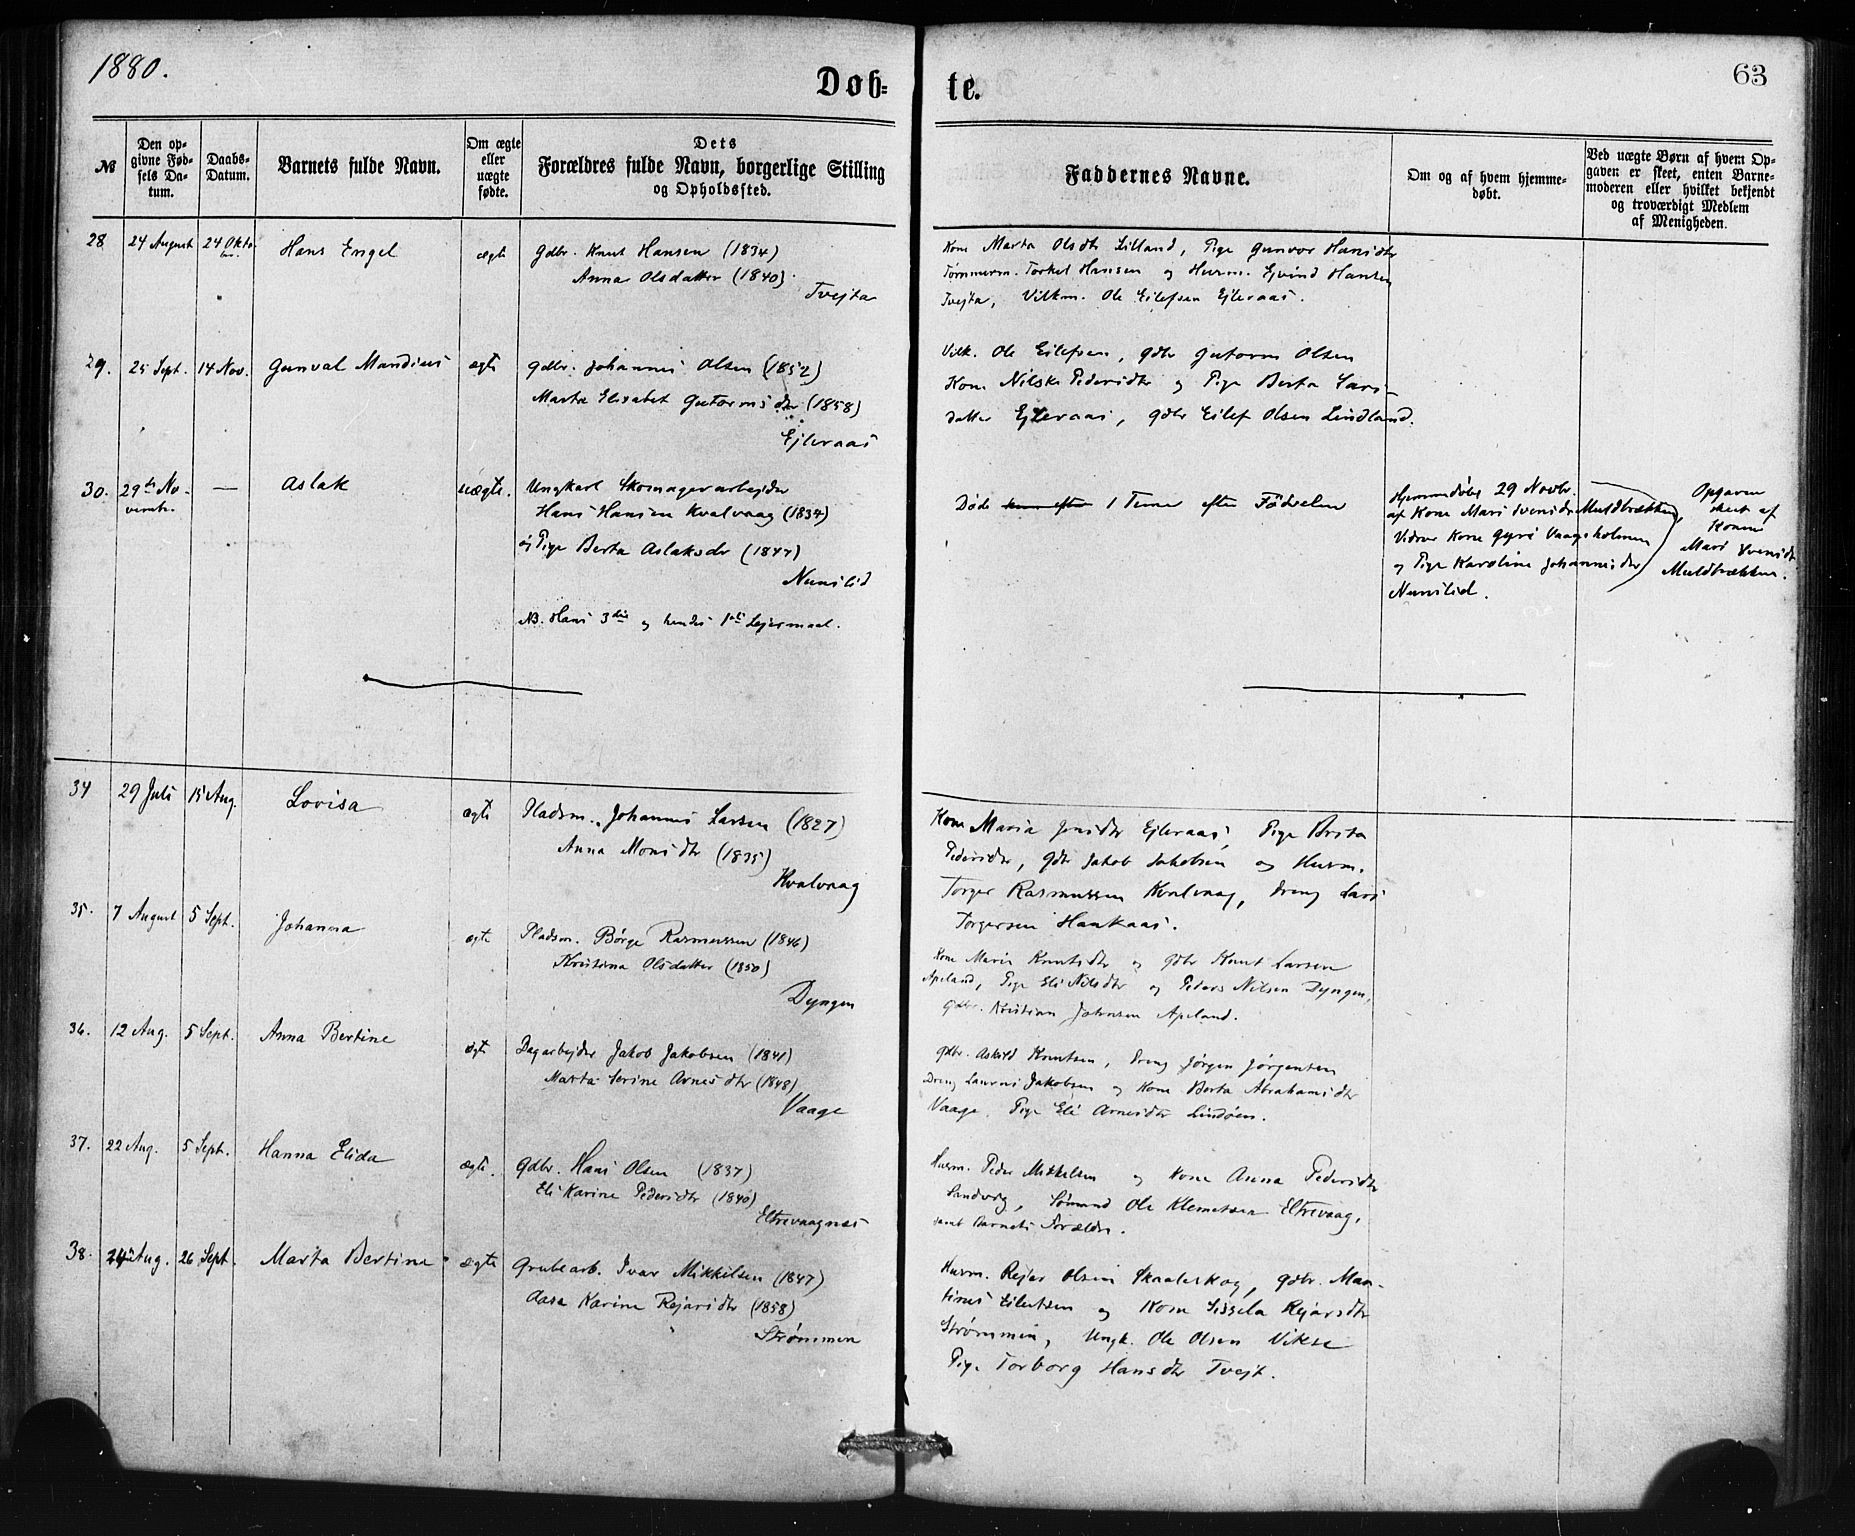 1880.
Døb=
te.
63
№
Den op=
givne Fød=
sels Da=
tum.
Daabs=
Datum.
Barnets fulde Navn.
Om ægte
eller
uægte
fødte.
Dets
Forældres fulde Navn, borgerlige Stilling
og Opholdssted.
Faddernes Navne.
Om og af hvem hjemme=
døbt.
Ved uægte Børn af hvem Op=
gaven er skeet, enten Barne=
moderen eller hvilket bekjendt
og troværdigt Medlem
af Menigheden.
28 24 August 24 Okto. Hans Engel ægte Gdbr. Knut Hansen (1834)
Anna Olsdatter (1840)
Tvejta
Kone Marta Olsdtr Lilland, Pige Gunvor Hansdtr
Tømmerm. Torkel Hansen og Husm. Ejvind Hansen
Tvejta, Ole Eilefsen Ejleraas.
29. 25 Sept. 14 Nov. Gunval Mandius ægte Gdbr. Johannes Olsen (1852)
Marta Elisabet Gutormsdtr (1858)
Ejleraas
Ole Eilefsen, Gdbr Gutorm Olsen
Kone Nilske Pedersdtr og Pige Berta Lars-
datter Ejleraas, Gdbr Eilef Olsen Lindland.
30. 29de No-
vembr. — Aslak uægte. Ungkarl Skomagerarbejder
Hans Hansen Kvalvaag (1834)
og Pige Berta Aslaksdr (1847)
Nunslid
NB. Hans 3die og hendes 1ste Lejermaal.
Døde 1 Time efter Fødselen
Hjemmedøbt 29 Novbr.
af Kone Mari Svensdr Muldbrækken,
Vidner Kone Gyri Vaagsholmen
og Pige Karoline Johannesdtr
Nunslid.
Opgaven
skeet af
Konen
Mari Svensdt
Muldbrækken.
34 29 Juli 15 Aug. Lovisa ægte Pladsm. Johannes Larsen (1827)
Anna Monsdtr (1835)
Kvalvaag
Kone Maria Jensdtr Ejleraas, Pige Brita
Pedersdtr, Gdbr Jakob Jakobsen og Husm.
Torger Rasmussen Kvalvaag, Dreng Lars
Torgersen Haakaas.
35. 7 August 5 Sept. Johanna ægte Pladsm. Børge Rasmussen (1846)
Kristina Olsdatter (1850)
Dyngen
Kone Maria Knutsdtr og Gdbr Knut Larsen
Apeland, Pige Eli Nilsdtr og Peder Nilsen Dyngen,
Gdbr. Kristian Johnsen Apeland.
36. 12 Aug. 5 Sept. Anna Bertine ægte Dagarbejder Jakob Jakobsen (1841)
Marta Serine Arnesdtr (1848)
Vaage
Gdbr. Askild Knutsen, Dreng Jørgen Jørgensen
Dreng Laurus Jakobsen og Kone Berta Abrahamsdtr
Vaage, Pige Eli Arnesdtr Lindøen.
37. 22 Aug. 5 Sept. Hanna Elida ægte. Gdbr. Hans Olsen (1837)
Eli Karine Pedersdtr (1840)
Eltrevaagnæs
Husm. Peder Mikkelsen og Kone Anna Pedersdtr
Sandvig, Sømand Ole Klemetsen Eltrevaag,
samt Barnets Forældre.
38. 24 Aug. 26 Sept. Marta Bertine ægte Grubearb. Ivar Mikkelsen (1847)
Aasa Karine Rejarsdtr (1858)
Strømmen
Husm. Rejar Olsen Skaaleskog, Gdbr. Mar-
tines Eilertsen og Kone Sissela Rejarsdtr
Strømmen, Ungk. Ole Olsen Vikse
Pige Torborg Hansdtr Tvejt.